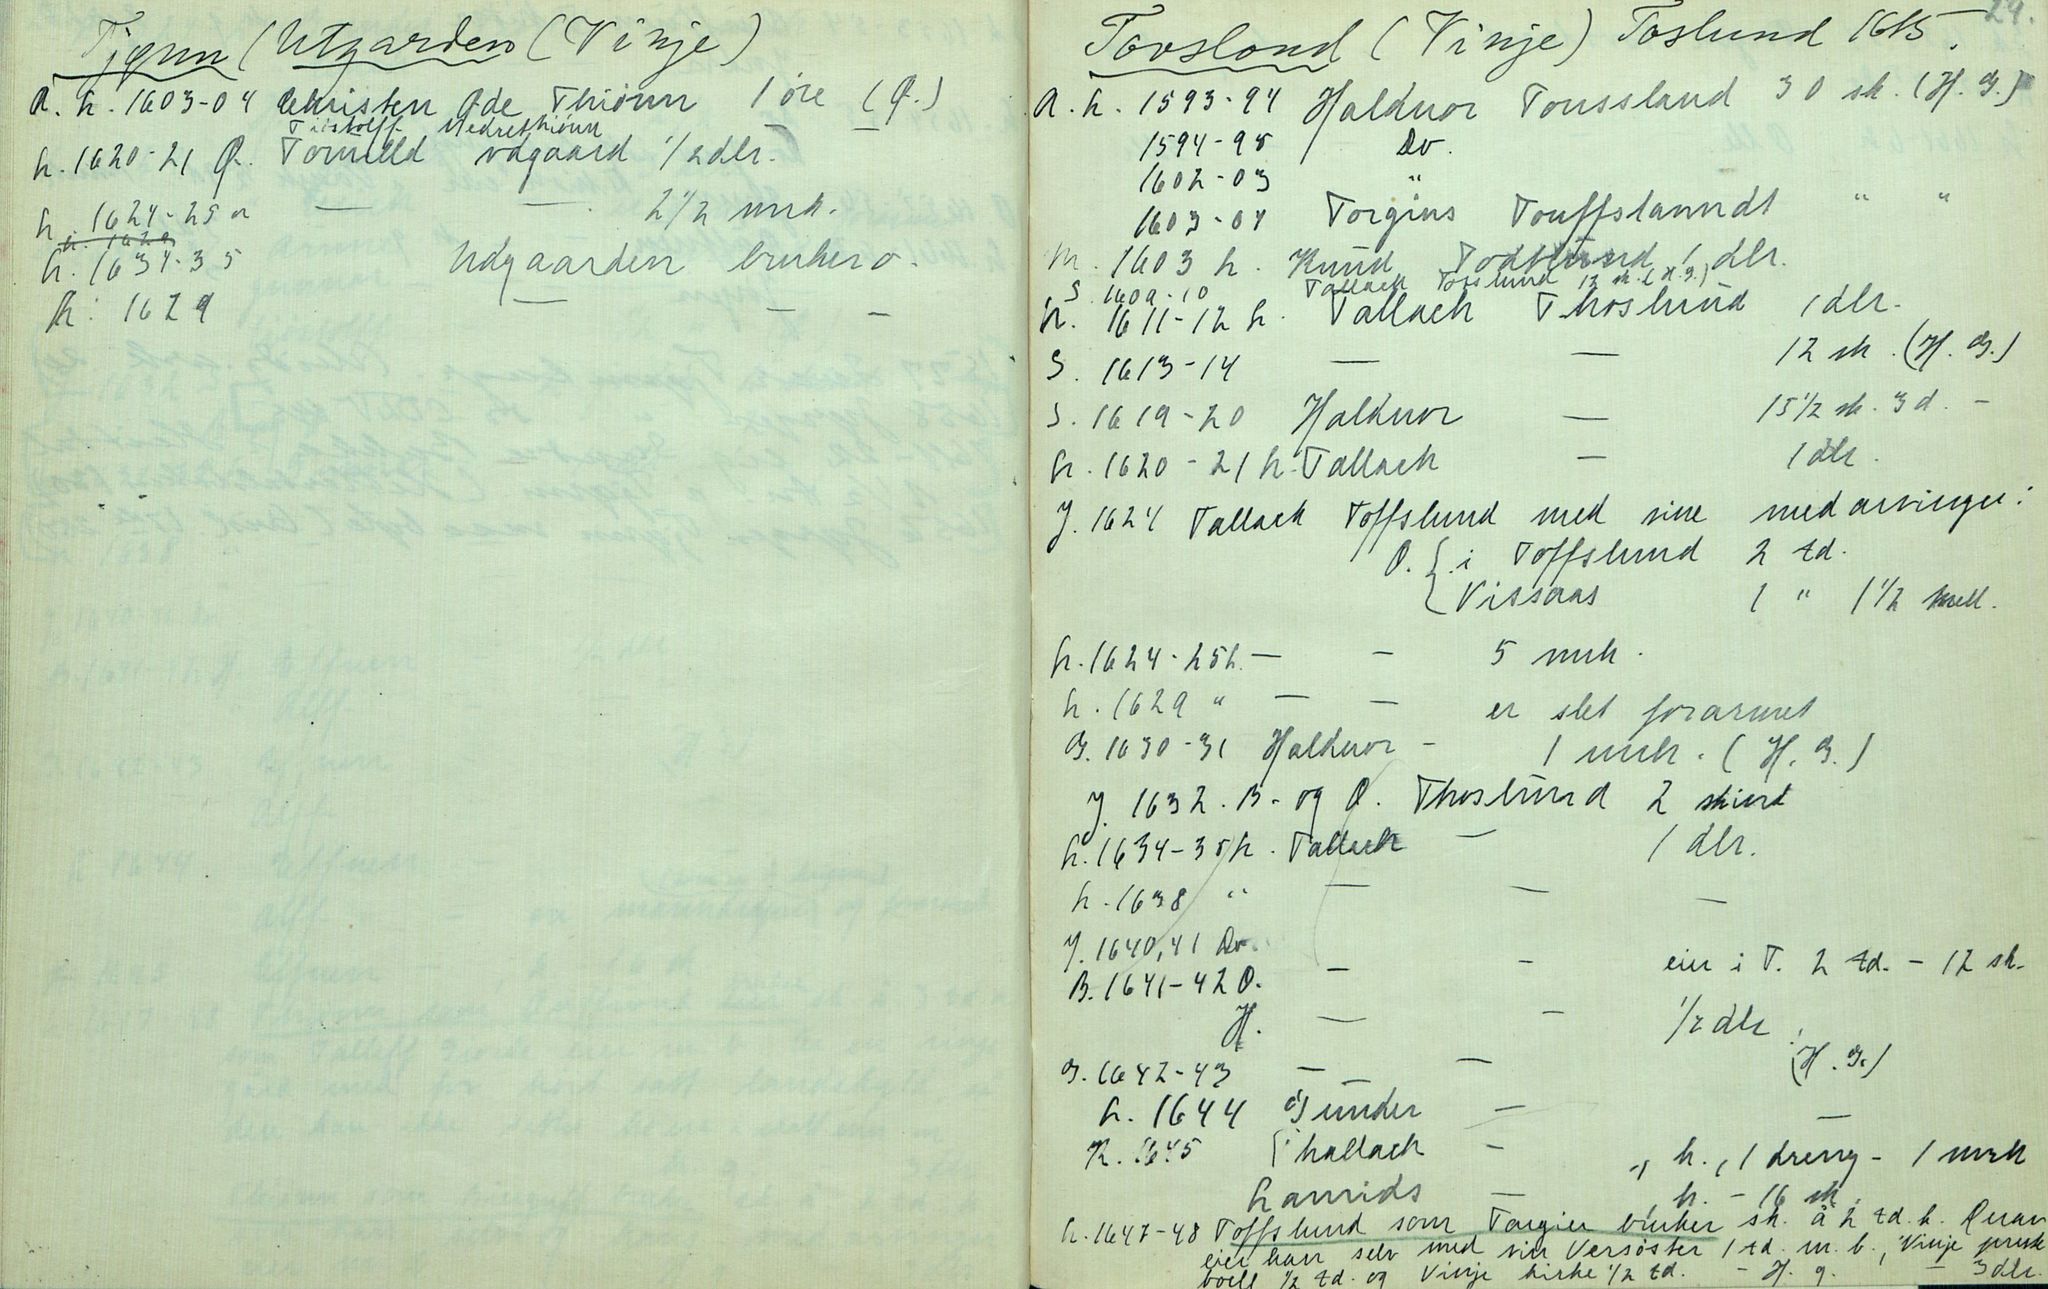 Tjønn (Utgarden (Vinje)
A. h. 1603-04 Christen Ode Thiönn 1 öre (Q.)
Tiistolff Nedrethiönn
h. 1620-21 Q. vdgaard 1/2 dlr.
h. 1624-25 — — 2 1/2 mrk.
h. 1629
h. 1634-35 Udgaarden bruker o.
h. 1629 — — —
24.
Tovslond (Vinje) Toslund 1615.
A. h. 1593-94 Halduor Toussland 30 sk. (H. G.)
1594-95 Do.
1602-03 "
1603-04 Torgius Touffslanndt " "
M. 1603 h. Knud 1 dlr.
S. 1609-10 Tallach Toslund 12 sk. (H. G.)
h. 1611-12 h. Tallach Thoslund 1 dlr.
S. 1613-14 — — 12 sk. (H. G.)
S. 1619-20 Halduor — 15 1/2 sk. 3 d. —
h. 1620-21 h. Tallach — 1 dlr.
J. 1624 Tallach Toffslund med sine medarvinger:
O. { i Toffslund 2 td.
Vissaas 1 " 1 1/2 skell.
h. 1624-25 h. — — 5 mrk.
h. 1629 " — — er slet forarmet
G. 1630-31 Halduor — 1 mrk. (H. G.)
J. 1632. B. og O. Thoslund 2 skind
h. 1634-35 h. Tallach — 1 dlr.
h. 1638 " — — —
J. 1640, 41 Do.
B. 1641-42 O. — — eier i T. 2 td. - 12 sk.
H. — — 1/2 dlr.
G. 1642-43 — — — (H. G.)
h. 1644 Gunder — —
K. 1645 { Thallach — h., 1 dreng - 1 mrk
— h. - 16 sk.
h. 1647-48 Toffslund som Torgier bruker sk. å 2 td. h. Derav
eier han selv med sin Versöster 1 td. m. b., Vinje prest
boell 1/2 td. og Vinje kirke 1/2 td. — H. g. — 3 dlr.